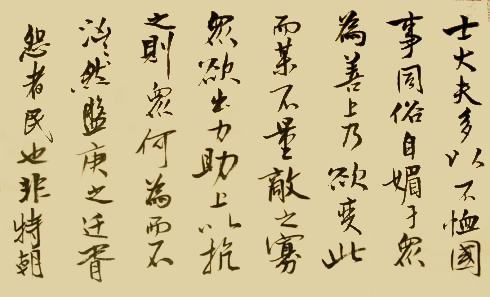 士大夫多以不恤國
事同俗自媚于衆
為善上乃欲變此
而某不量敵之寡
衆欲出力助上以抗
之則衆何為而不
洶洶然盤庚之遷胥
怨者民也非特朝